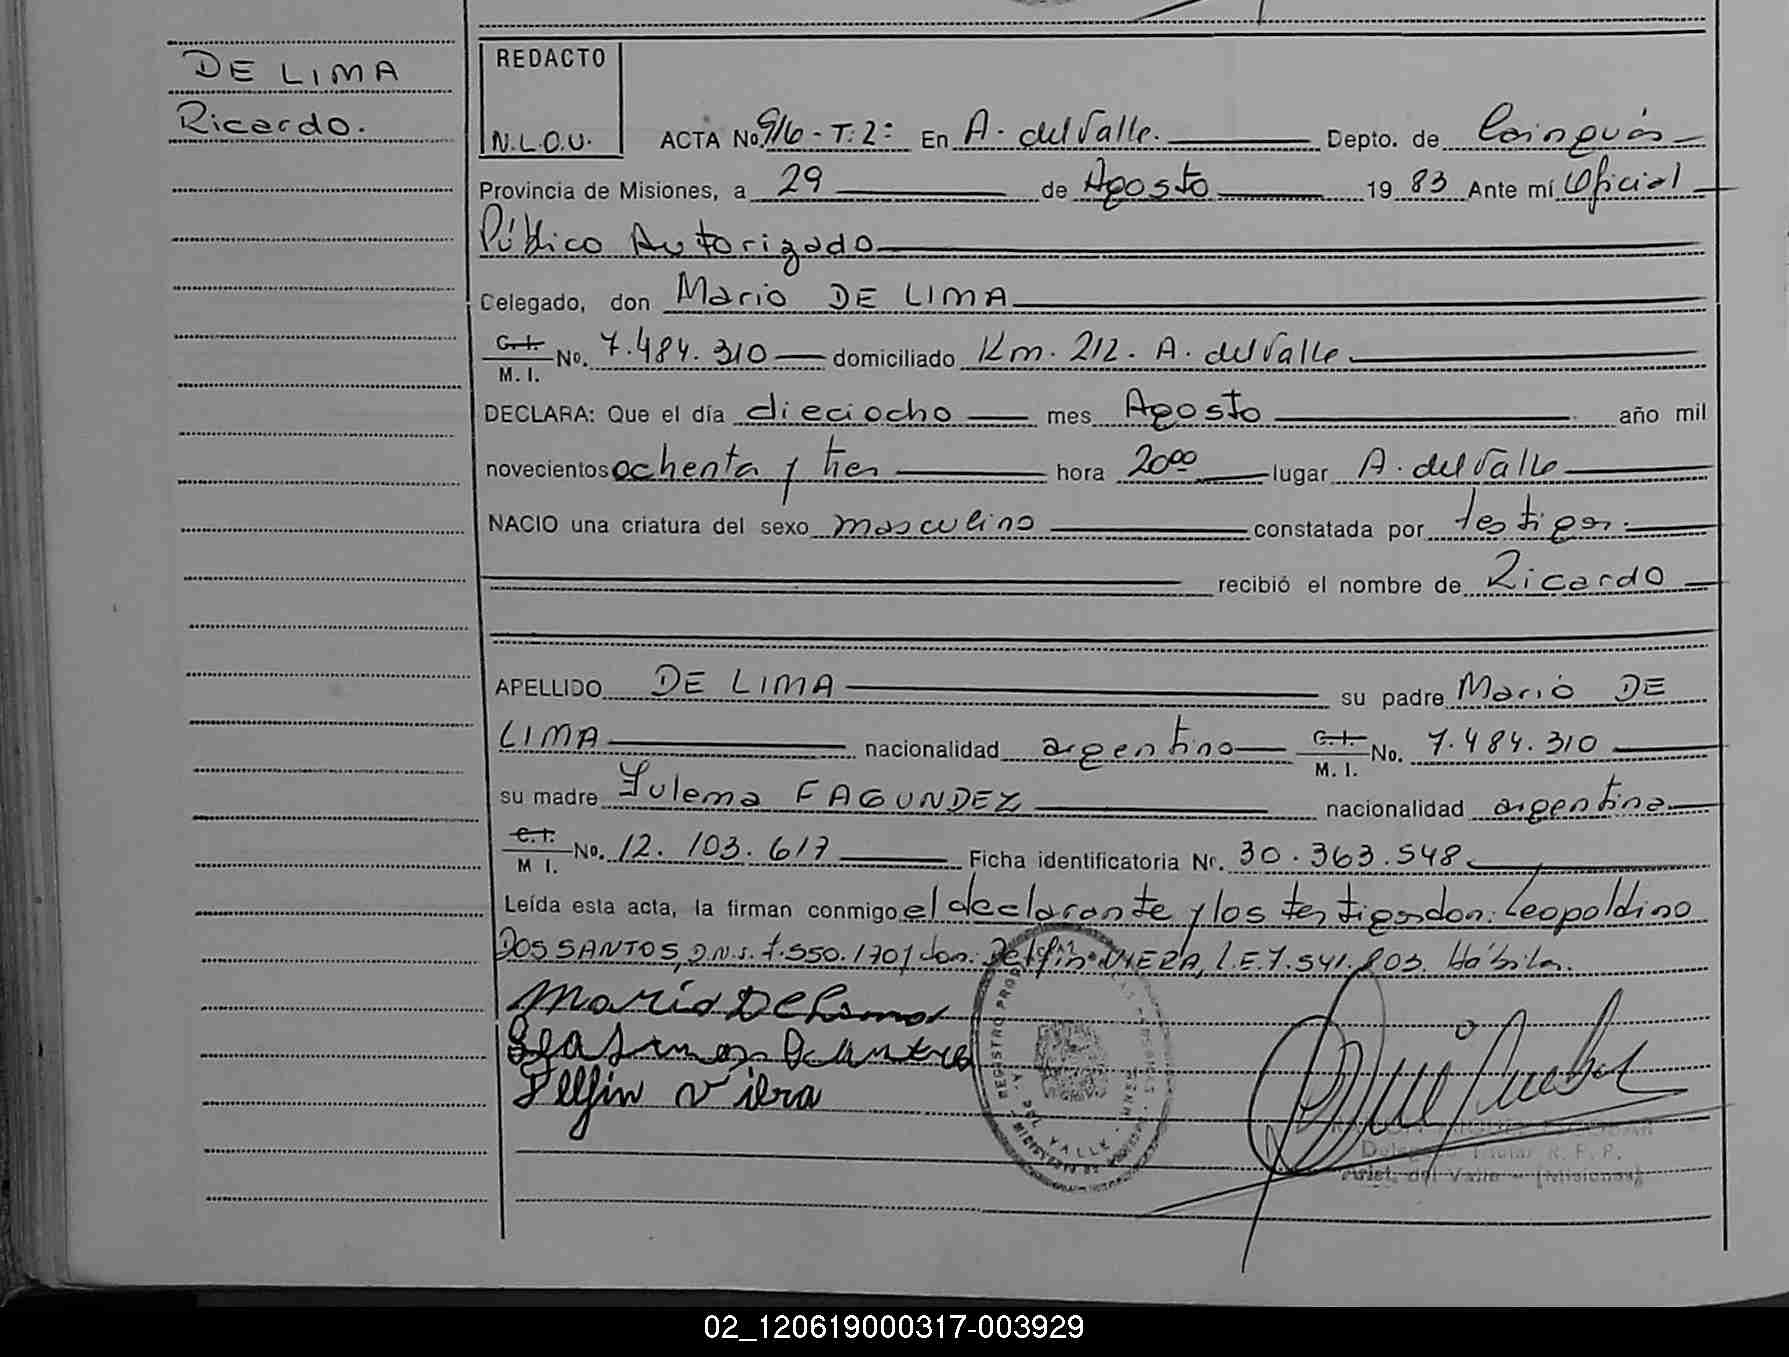 DE LIMA
Ricardo.
REDACTO
N.L.O.U.
ACTA No. 916 - T: 2: En A. del Valle. Depto. de Cainguás
Provincia de Misiones, a 29 de Agosto 19 83 Ante mí Oficial
Público Autorizado
Celegado, don Mario DE LIMA
C. I.
M. I. No. 7.484.310 domiciliado Km. 212. A. del Valle
DECLARA: Que el día dieciocho mes Agosto año mil
novecientos ochenta y tres hora 20 00 lugar A. del Valle
NACIO una criatura del sexo masculino constatada por testigos.
recibió el nombre de Ricardo
APELLIDO DE LIMA su padre Mario DE
LIMA nacionalidad argentino C. I. M. I. No. 7.484.310
su madre Zulema FAGUNDEZ nacionalidad argentina
C. I.
M I. No. 12.103.617 Ficha identificatoria Nr. 30.363.548
Leída esta acta, la firman conmigo el declarante y los testigos don: Leopoldino
DOS SANTOS, 7.550.170 y don: Delfin VIERA, L.E. 7.541.803. Hábiles.
Mario De Lima
Delfin Viera
REGISTRO
DEL VALLE
R. P. P.
Arist. del Valle - (Misiones)
02_120619000317-003929